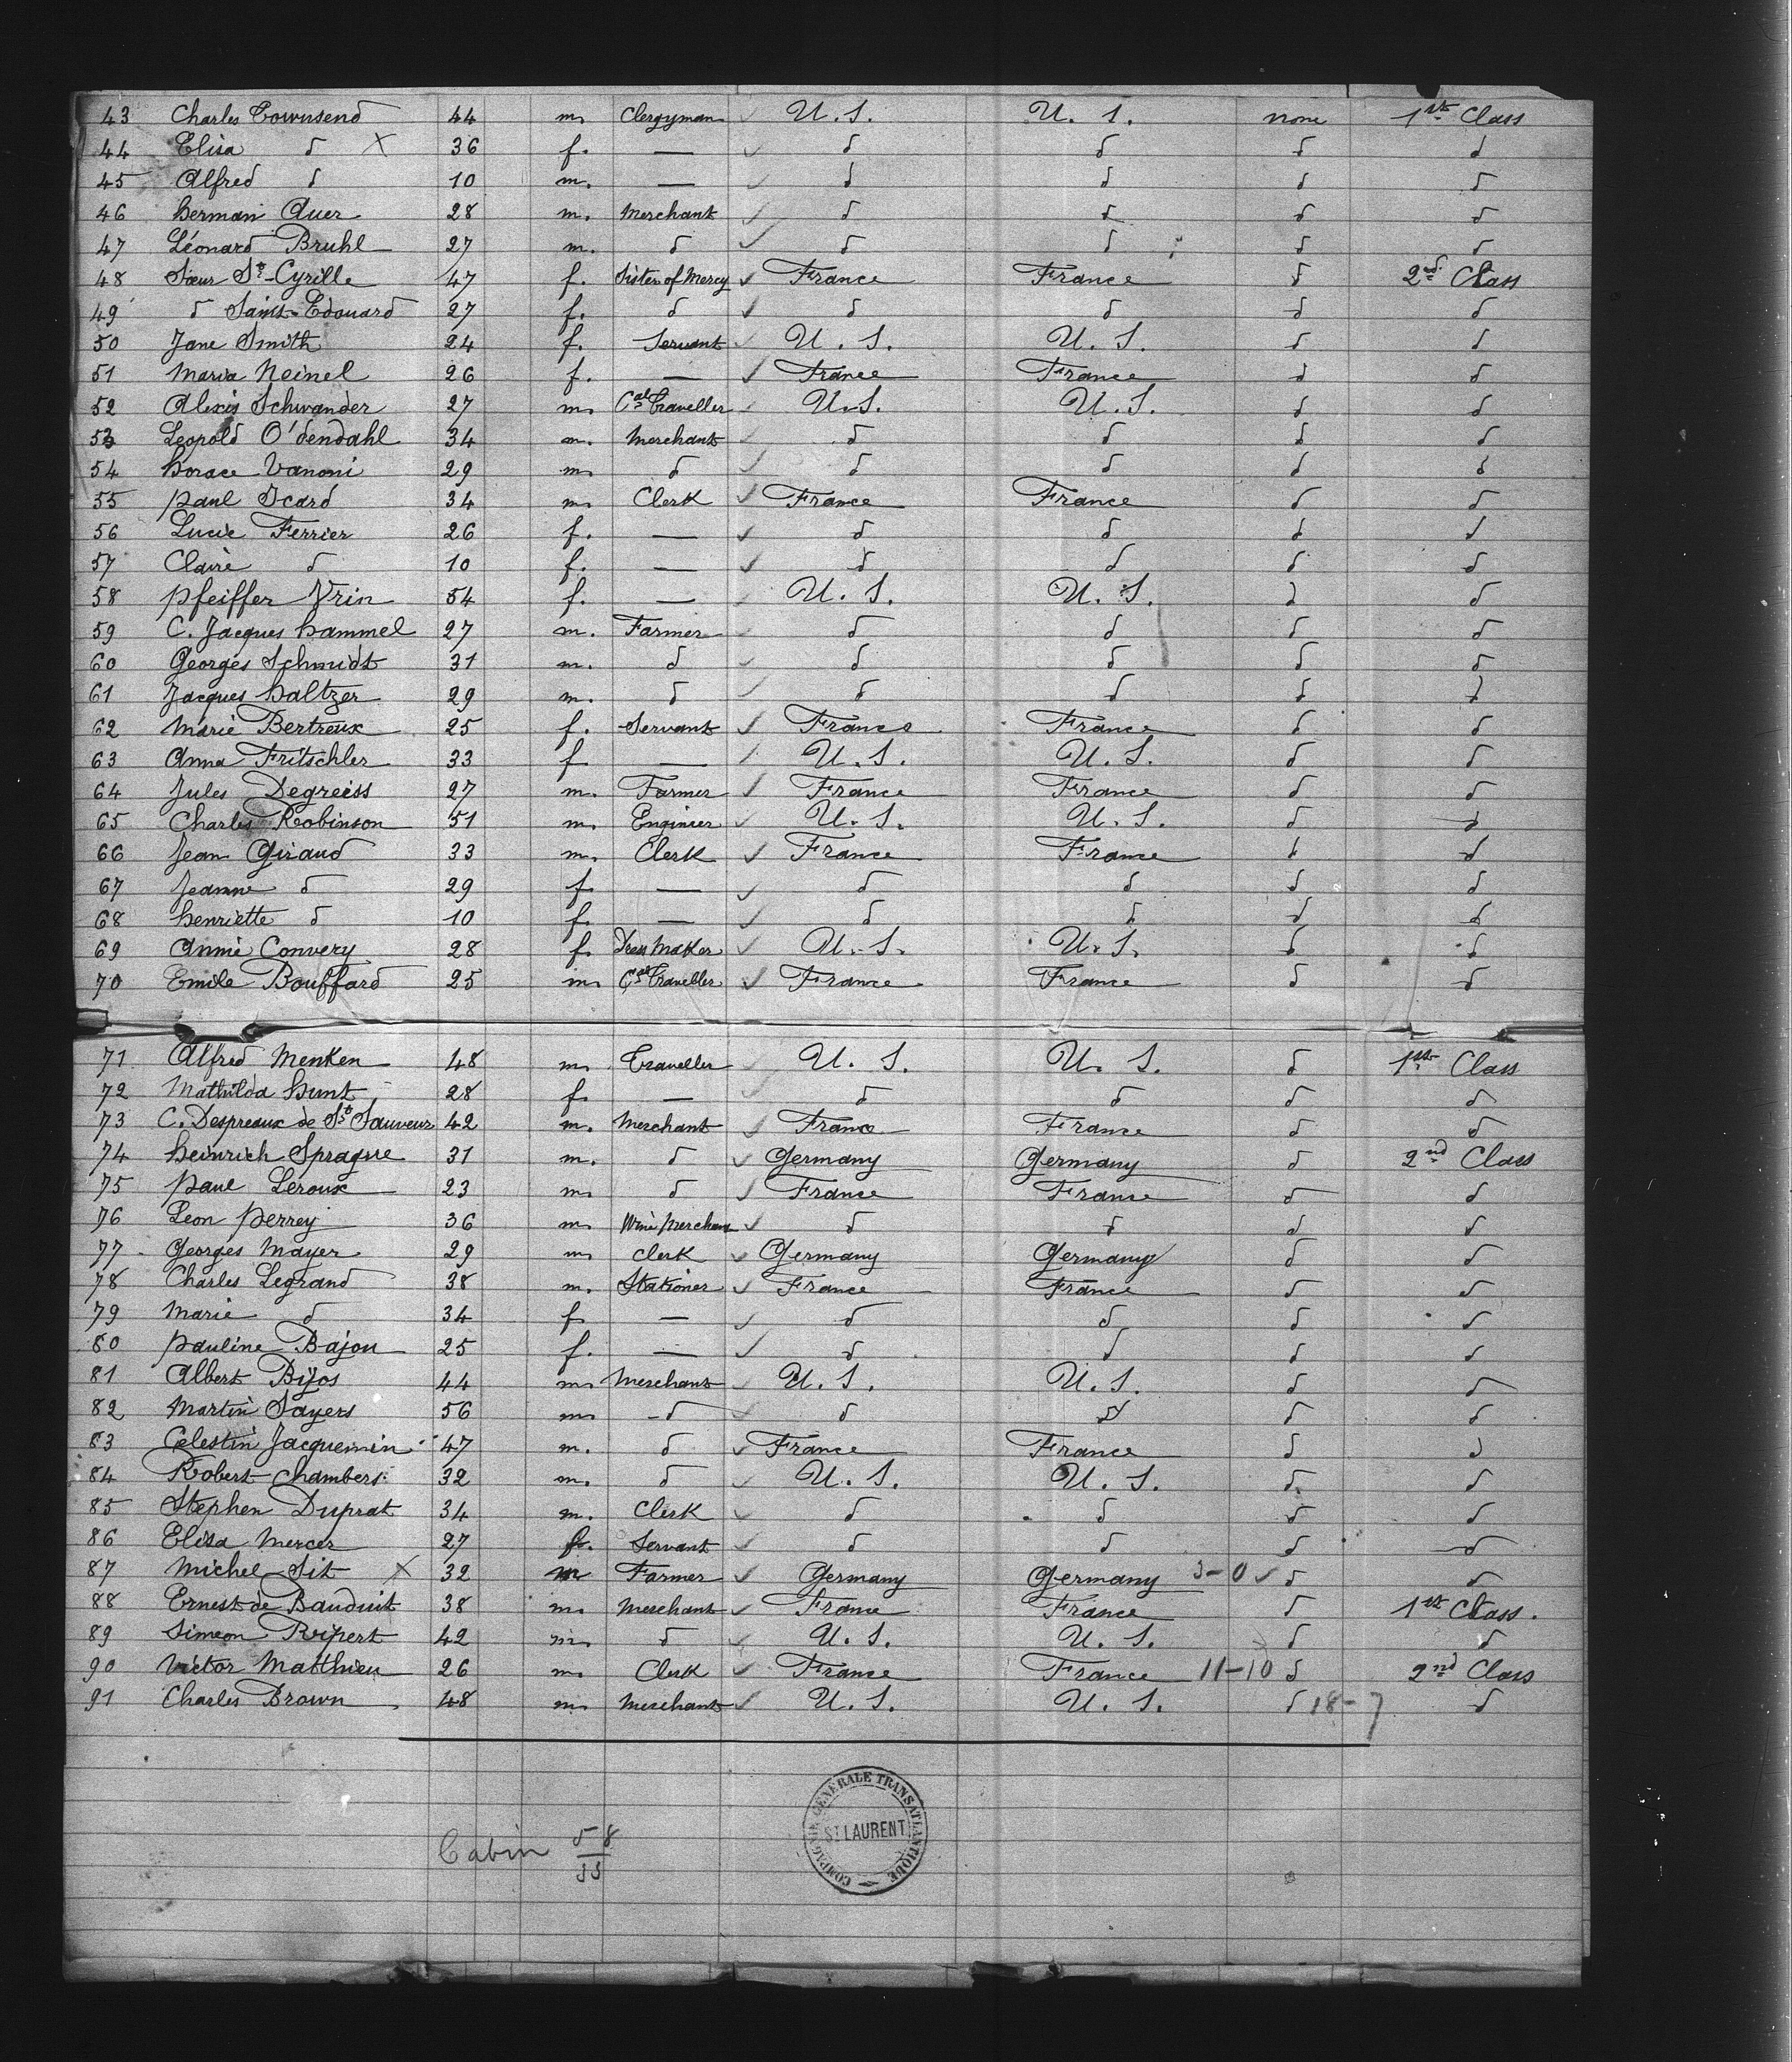 43 Charles Townsend 44 m. Clergyman U. S. U. S. none 1st Class
44 Elisa d X 36 f. — d d d d
45 Alfred d 10 m. — d d d d
46 Herman Auer 28 m. Merchant d d d d
47 Léonard Bruhl 27 m. d d d d d
48 Sœur St-Cyrille 47 f. Sister of Mercy France France d 2nd Class
49 d Saint-Edouard 27 f. d d d d d
50 Jane Smith 24 f. Servant U. S. U. S. d d
51 Maria Neinel 26 f. — France France d d
52 Alexis Schwander 27 m. Cal Traveller U. S. U. S. d d
53 Leopold O'dendahl 34 m. Merchant d d d d
54 Horace Vanoni 29 m. d d d d d
55 Paul Icard 34 m. Clerk France France d d
56 Lucie Ferrier 26 f. — d d d d
57 Claire d 10 f. — d d d d
58 Pfeiffer Vrin 54 f. — U. S. U. S. d d
59 C. Jacques Hammel 27 m. Farmer d d d d
60 Georges Schmidt 31 m. d d d d d
61 Jacques Haltzer 29 m. d d d d d
62 Marie Bertreux 25 f. Servant France France d d
63 Anna Fritschler 33 f — U. S. U. S. d d
64 Jules Degreiss 27 m. Farmer France France d d
65 Charles Robinson 51 m. Enginier U. S. U. S. d d
66 Jean Giraud 33 m. Clerk France France d d
67 Jeanne d 29 f. — d d d d
68 Henriette d 10 f. — d d d d
69 Annie Convery 28 f. Dress Maker U. S. U. S. d d
70 Emile Bouffard 25 m. Cal Traveller France France d d
71 Alfred Menken 48 m. Traveller U. S. U. S. d 1st Class
72 Mathilda Hunt 28 f. — d d d d
73 C. Despreaux de St Sauveur 42 m. Merchant France France d d
74 Heinrich Sprague 31 m. d Germany Germany d 2nd Class
75 Paul Leroux 23 m. d France France d d
76 Leon Perrey 36 m. Wine Merchant d d d d
77 Georges Mayer 29 m. Clerk Germany Germany d d
78 Charles Legrand 38 m. Stationer France France d d
79 Marie d 34 f. — d d d d
80 Pauline Bajou 25 f. — d d d d
81 Albert Bijos 44 m. Merchant U. S. U. S. d d
82 Martin Sayers 56 m. d d d d d
83 Celestin Jacquemin 47 m. d France France d d
84 Robert Chambers 32 m. d U. S. U. S. d d
85 Stephen Duprat 34 m. Clerk d d d d
86 Elisa Mercer 27 f. Servant d d d d
87 Michel Sit X 32 m Farmer Germany Germany 3-0 d d
88 Ernest de Bauduit 38 m. Merchant France France d 1st Class.
89 Simeon Ripert 42 m. d U. S. U. S. d d
90 Victor Matthieu 26 m. Clerk France France 11-10 d 2nd Class
91 Charles Brown 48 m. Merchant U. S. U. S. d 18-7 d
COMPAGNIE GÉNÉRALE TRANSATLANTIQUE
ST LAURENT
Cabin 58
33